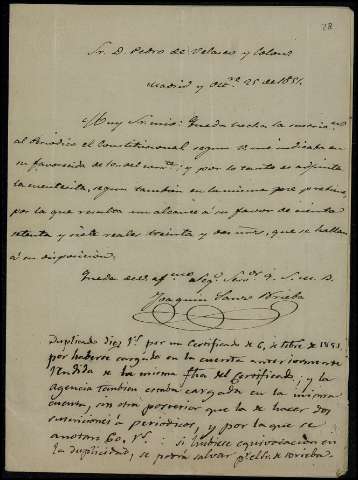 28
Sr. D. Pedro de Velasco y Colon
Madrid y Oct.e 25 de 1851.
Muy Sr. mio: Queda hecha la suscrin.
al Periodico el Constitucional segun V. me indicaba en
su favorecida de 1o. del corrte.; y por lo tanto es adjunta
la cuentecita, segun tambien en la misma
por la que resulta un alcance á su favor de ciento
setenta y siete reales treinta y dos mrs, que se hallan
á su disposicion.
Queda de V. afmo. Seg. Servor. Q. S. M. B.
Joaquin Sanz Urieba
Duplicado diez rs. por un Certificado de 6, de 1851.
por haberse cargado en la cuenta anteriormente
rendida de la misma fha del Certificado, y la
agencia tambien estaba cargada en la misma
cuenta, in otra posterior que la de hacer dos
suscriciones á periodicos, y por la que se
anotan 60, rs. : si hubiese equivocacion en
la duplicidad, se podrá salvar